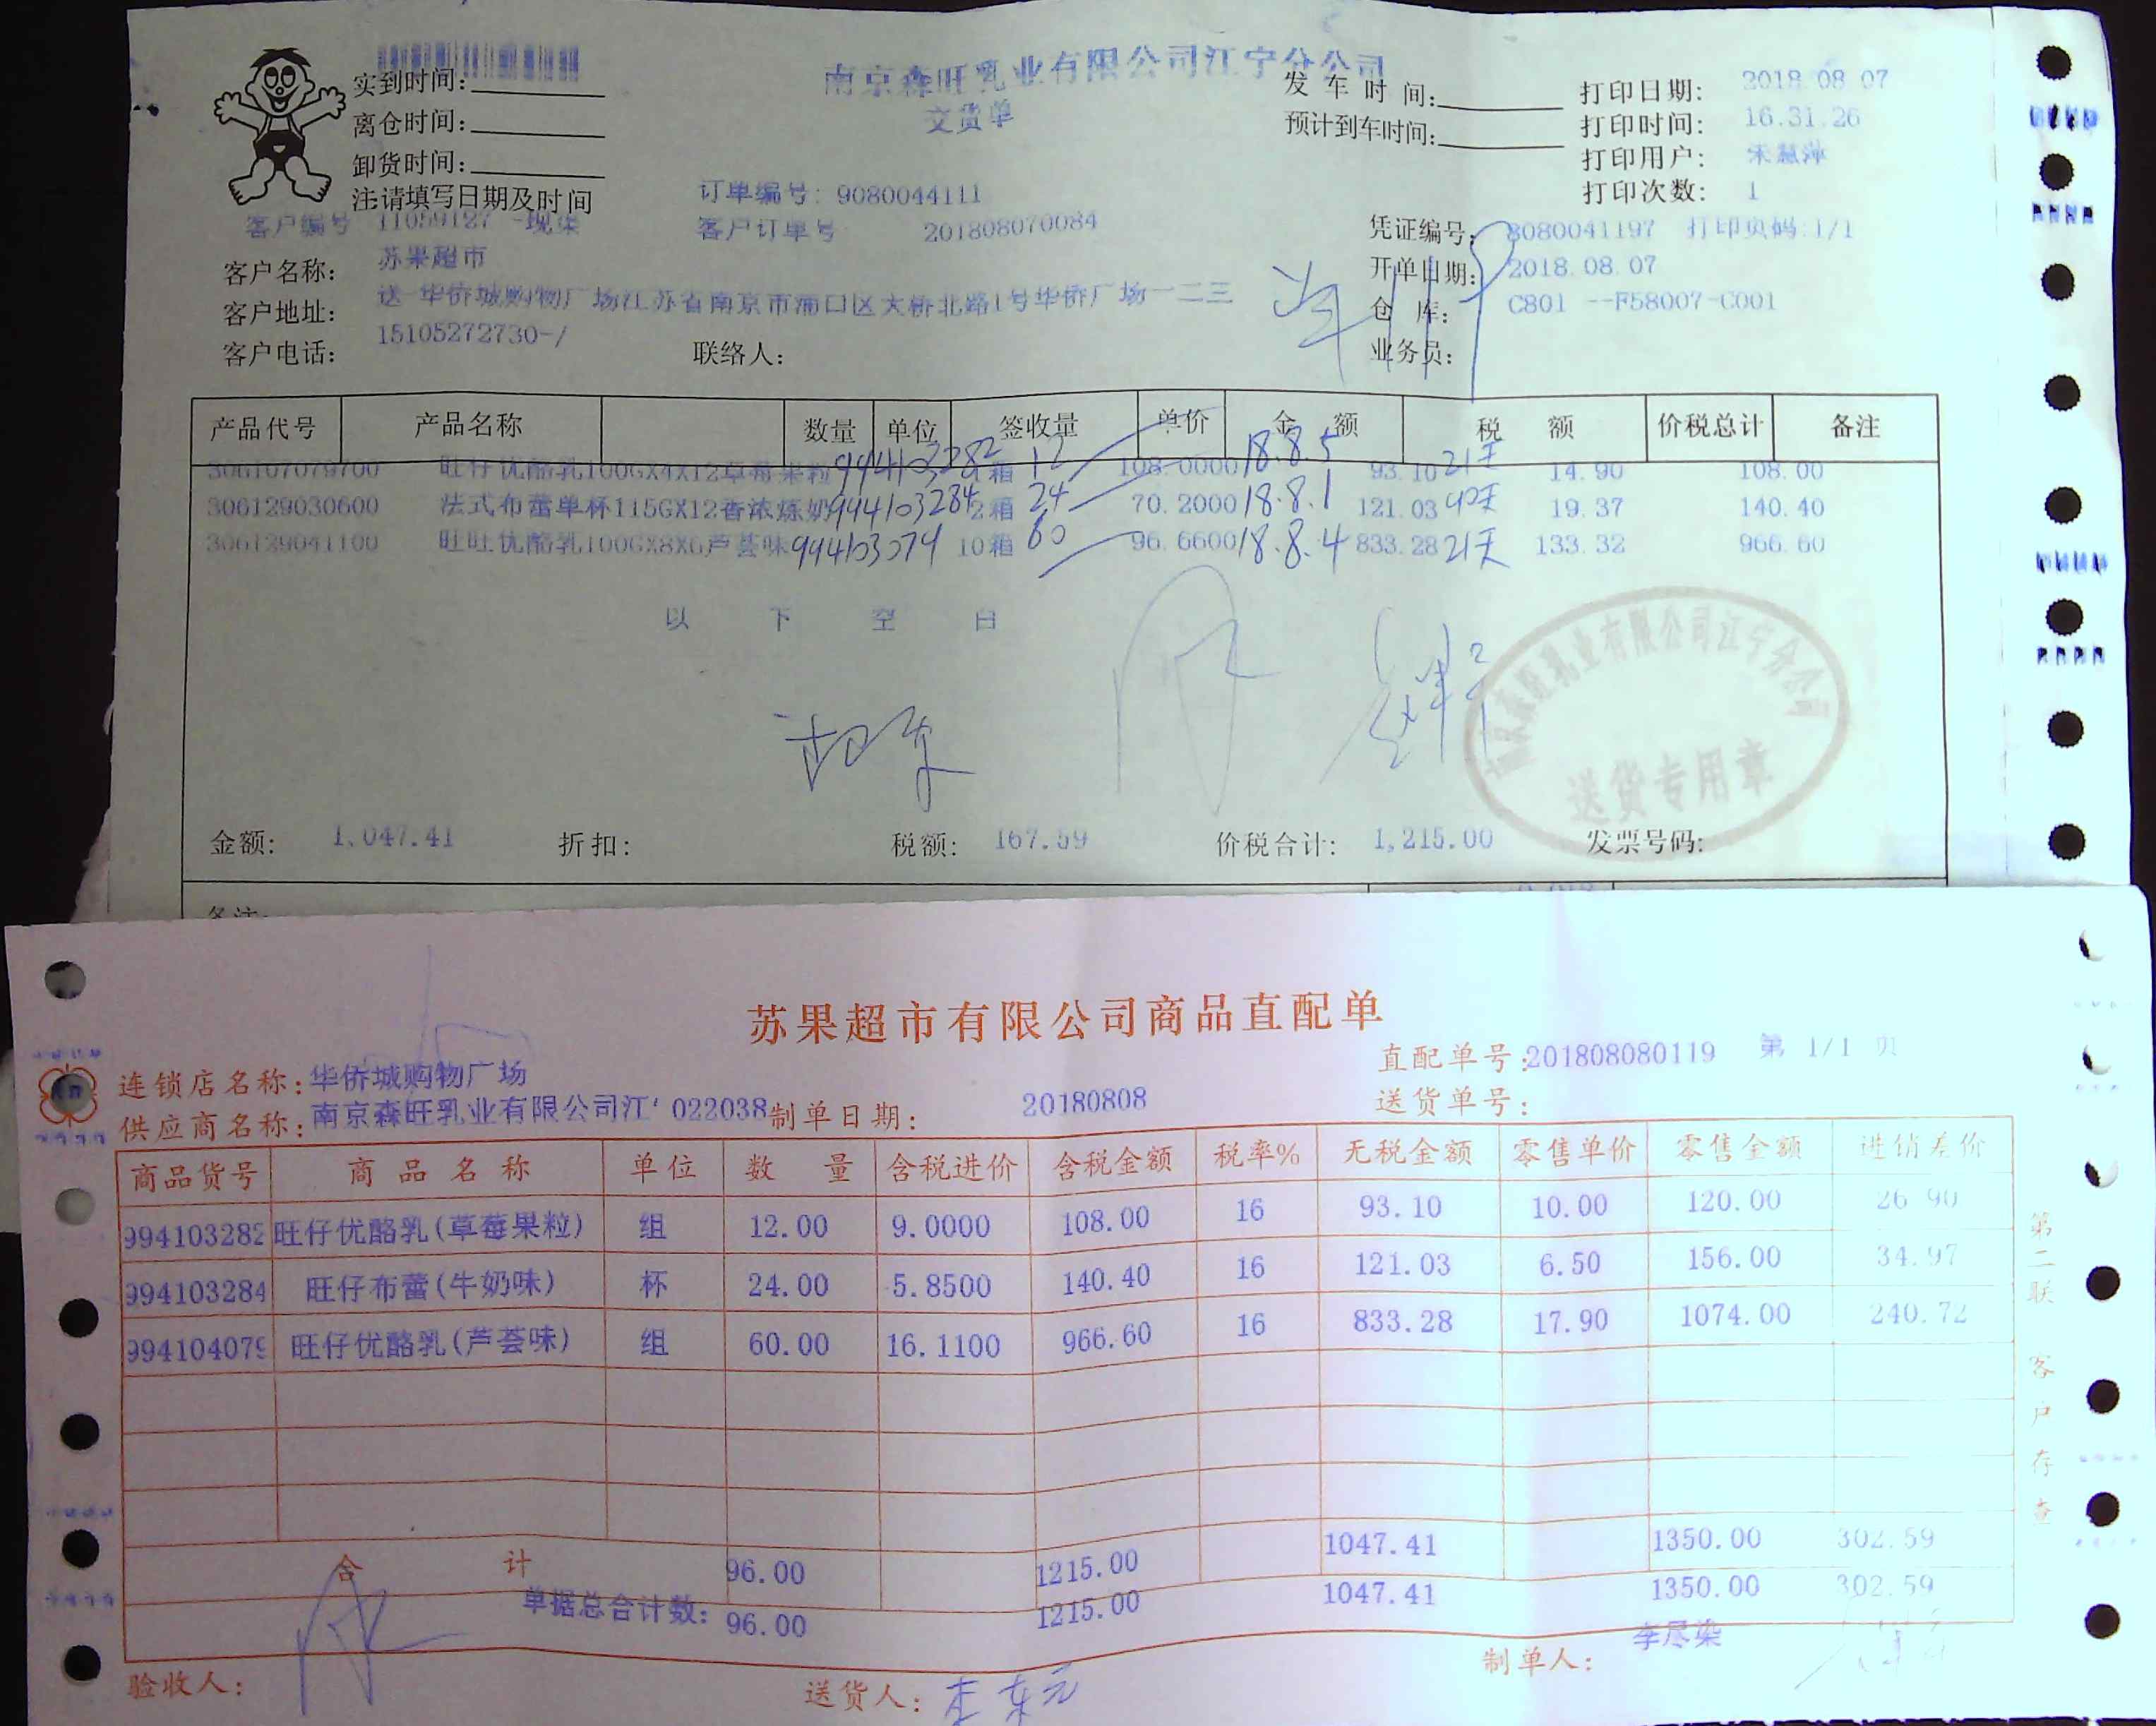 南京森旺乳业有限公司江宁分公司
交货单
实到时间:
离仓时间:
卸货时间:
注:请填写日期及时间
发车时间:
预计到车时间:
打印日期: 2018.08.07
打印时间: 16.31.26
打印用户:
打印次数: 1
订单编号: 9080044111
客户编号 11059127
客户订单号 201808070084
凭证编号: 8080041197 打印页码:1/1
客户名称: 苏果超市
开单日期: 2018.08.07
客户地址: 送-华侨城购物广场江苏省南京市浦口区大桥北路1号华侨广场一二三
仓库: C801 --F58007-C001
客户电话: 15105272730-/
联络人:
业务员:
产品代号 产品名称 数量 单位 签收量 单价 金额 税额 价税总计 备注
306107079700 旺仔优酪乳100GX4X12草莓果粒 994103282 箱 12 108.0000 18.8.5 93.10 21天 14.90 108.00
306129030600 法式布蕾单杯115GX12香浓炼奶 994103284 2箱 24 70.2000 18.8.1 121.03 40天 19.37 140.40
306129041100 旺旺优酪乳100GX8X6芦荟味 994103079 10箱 60 96.6600 18.8.4 833.28 21天 133.32 966.60
以下空白
南京森旺乳业有限公司江宁分公司
送货专用章
金额: 1,047.41 折扣: 税额: 167.59 价税合计: 1,215.00 发票号码:
备注:
苏果超市有限公司商品直配单
直配单号:201808080119 第 1/1 页
连锁店名称:华侨城购物广场
供应商名称:南京森旺乳业有限公司江' 022038 制单日期: 20180808 送货单号:
商品货号 商品名称 单位 数量 含税进价 含税金额 税率% 无税金额 零售单价 零售金额 进销差价
994103282 旺仔优酪乳(草莓果粒) 组 12.00 9.0000 108.00 16 93.10 10.00 120.00 26.90
994103284 旺仔布蕾(牛奶味) 杯 24.00 5.8500 140.40 16 121.03 6.50 156.00 34.97
994104079 旺仔优酪乳(芦荟味) 组 60.00 16.1100 966.60 16 833.28 17.90 1074.00 240.72
合计 96.00 1215.00 1047.41 1350.00 302.59
单据总合计数: 96.00 1215.00 1047.41 1350.00 302.59
验收人:
送货人:
制单人:
第二联 客户存查